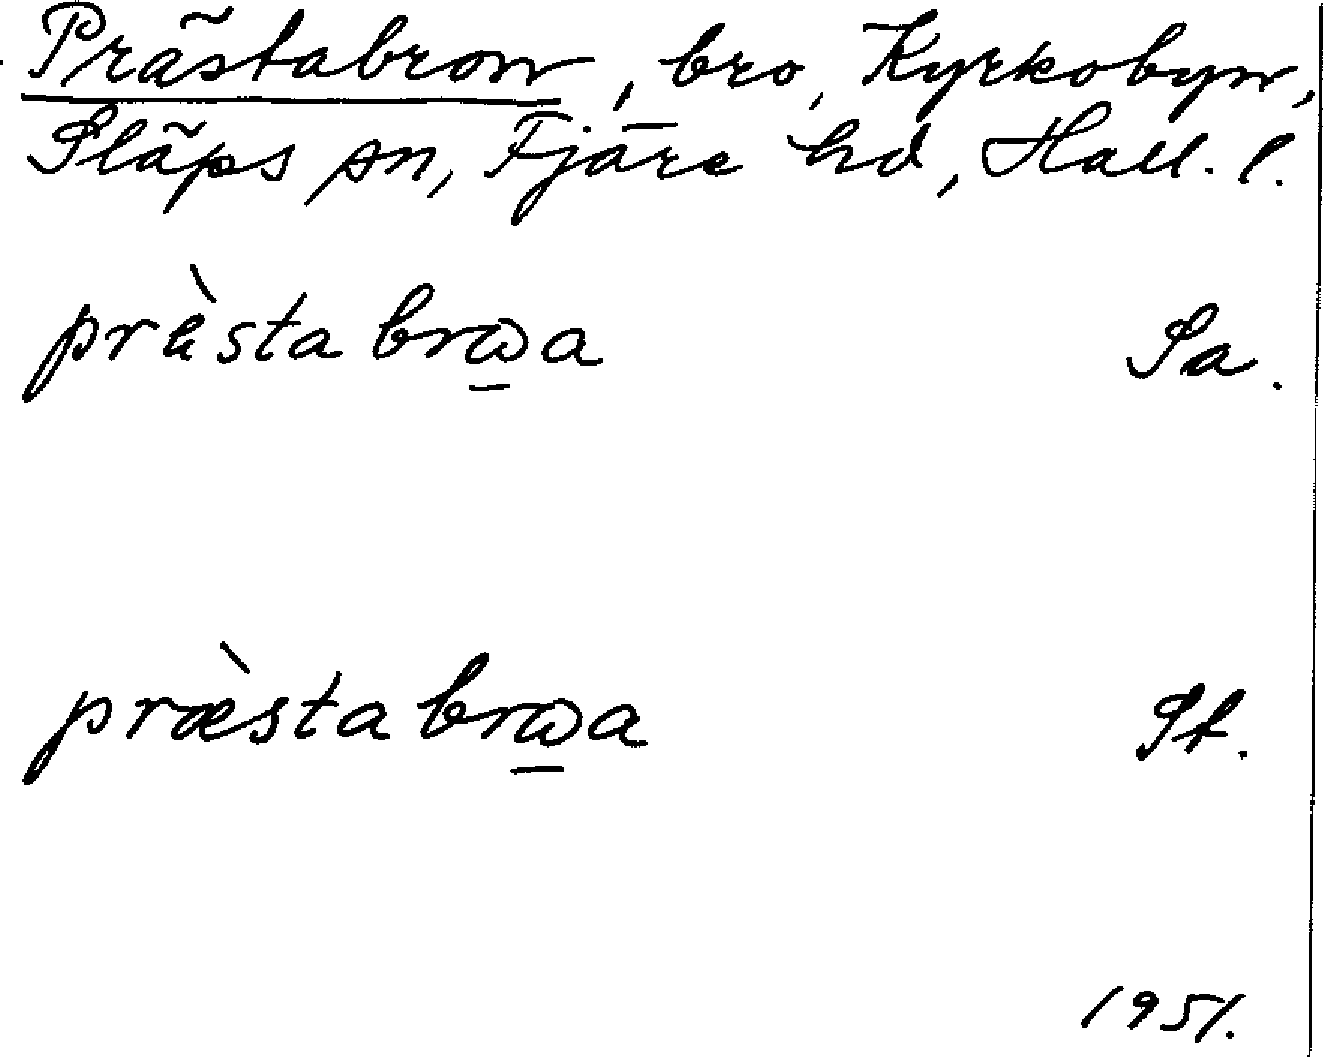 Prästabron, bro, Kyrkobyn,
Släps sn, Fjäre hd, Hall. l.
prästa brωa Sa.
præsta brωa St.
1951.